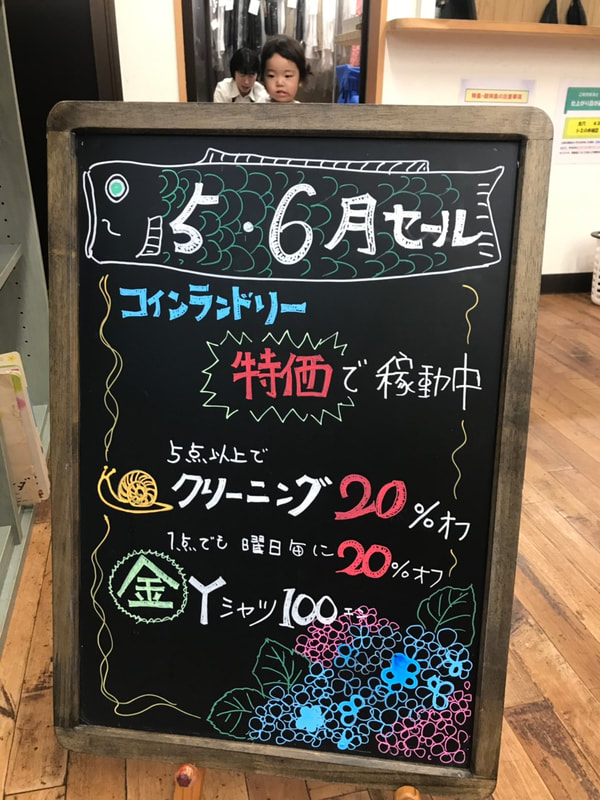 5・6月セール
コインランドリー
特価で稼動中
5点以上で
クリーニング20%オフ
1点でも曜日毎に20%オフ
金 Yシャツ100